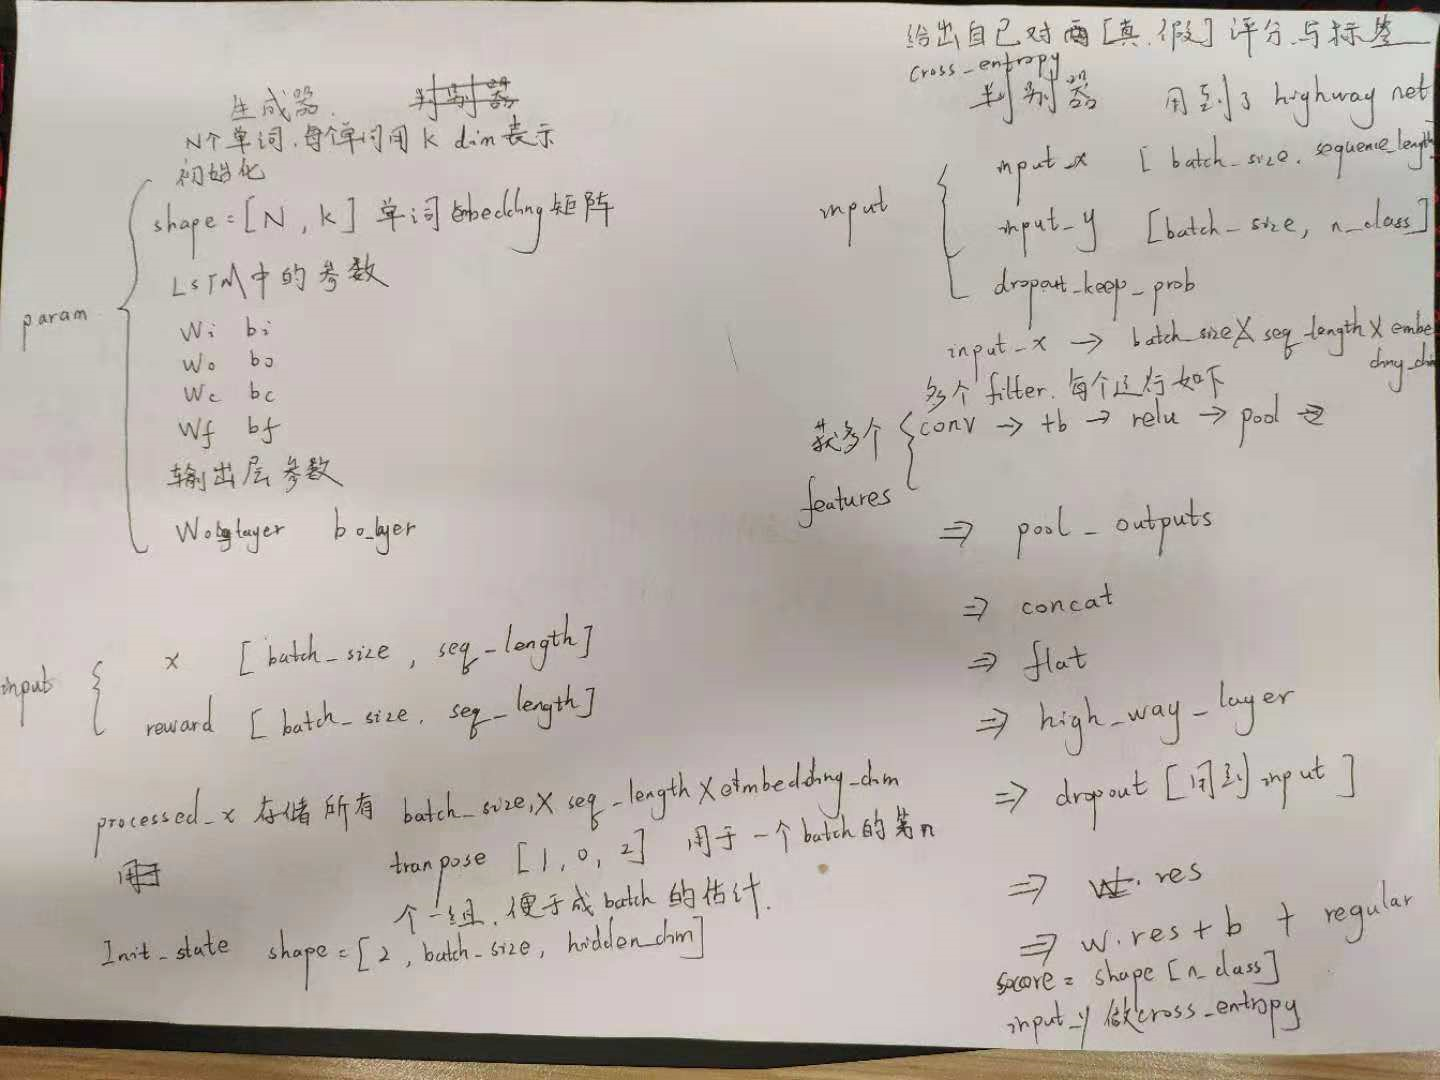 生成器.
N个单词.每个单词用 k dim 表示
初始化
param
shape=[N, k] 单词 embedding 矩阵
LSTM中的参数
Wi bi
Wo bo
Wc bc
Wf bf
输出层参数
Wo_layer bo_layer
input
x [batch_size, seq_length]
reward [batch_size. seq_length]
processed_x 存储所有 batch_size X seq_length X embedding_dim
tranpose [1, 0, 2] 用于一个batch的第n
个一组.便于成batch的估计.
Init_state shape=[2, batch_size, hidden_dim]
给出自己对两[真.假]评分与标签
cross_entropy
判别器 用到了 highway net
input
input_x [batch_size. sequence_length
input_y [batch_size, n_class]
dropout_keep_prob
input_x → batch_size X seq_length X embe
ding_dim
多个filter.每个运行如下
获多个
features
conv → +b → relu → pool
⇒ pool_outputs
⇒ concat
⇒ flat
⇒ high_way_layer
⇒ dropout [用到 input]
⇒ W.res
⇒ W.res + b + regular
socore = shape [n_class]
input_y 做cross_entropy